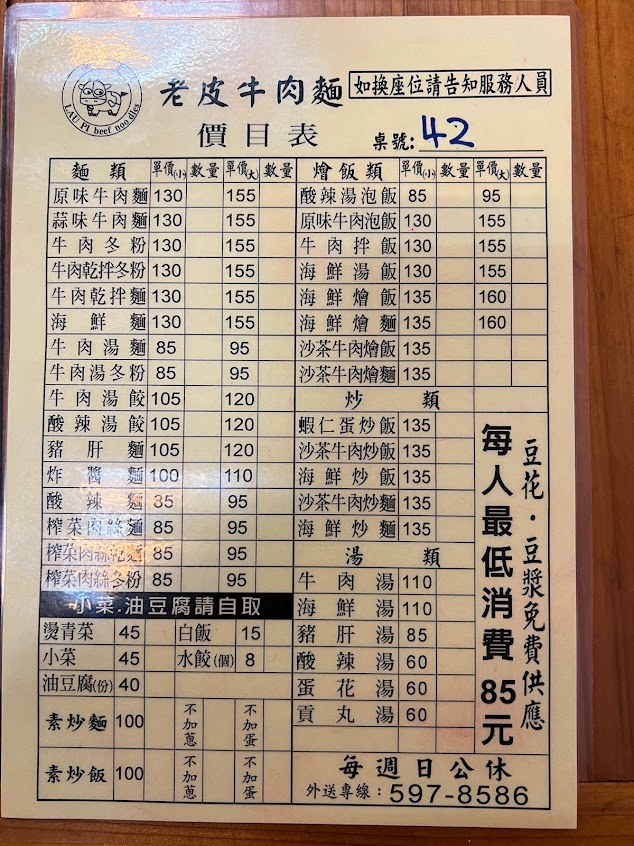 LAU PI beef noodles
老皮牛肉麵
如換座位請告知服務人員
價目表
桌號:42
麵類 單價(小) 數量 單價(大) 數量
原味牛肉麵 130 155
蒜味牛肉麵 130 155
牛肉冬粉 130 155
牛肉乾拌冬粉 130 155
牛肉乾拌麵 130 155
海鮮麵 130 155
牛肉湯麵 85 95
牛肉湯冬粉 85 95
牛肉湯餃 105 120
酸辣湯餃 105 120
豬肝麵 105 120
炸醬麵 100 110
酸辣麵 85 95
榨菜肉絲麵 85 95
榨菜肉絲乾麵 85 95
榨菜肉絲冬粉 85 95
小菜.油豆腐請自取
燙青菜 45 白飯 15
小菜 45 水餃(個) 8
油豆腐(份) 40
素炒麵 100 不加蔥 不加蛋
素炒飯 100 不加蔥 不加蛋
燴飯類 單價(小) 數量 單價(大) 數量
酸辣湯泡飯 85 95
原味牛肉泡飯 130 155
牛肉拌飯 130 155
海鮮湯飯 130 155
海鮮燴飯 135 160
海鮮燴麵 135 160
沙茶牛肉燴飯 135
沙茶牛肉燴麵 135
炒類
蝦仁蛋炒飯 135
沙茶牛肉炒飯 135
海鮮炒飯 135
沙茶牛肉炒麵 135
海鮮炒麵 135
湯類
牛肉湯 110
海鮮湯 110
豬肝湯 85
酸辣湯 60
蛋花湯 60
貢丸湯 60
豆花‧豆漿免費供應
每人最低消費85元
每週日公休
外送專線：597-8586